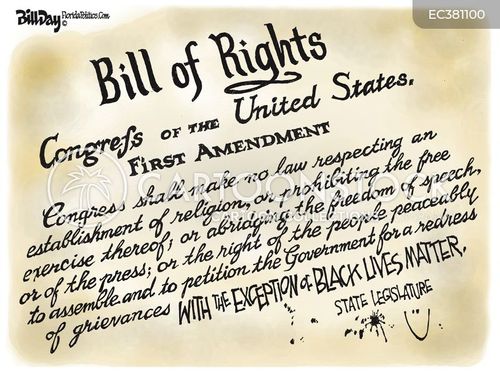 BillDay FloridaPolitics.Com
©
EC381100
Bill of Rights
Congreſs OF THE United States.
FIRST AMENDMENT
Congress shall make no law respecting an
establishment of religion, or prohibiting the free
exercise thereof; or abridging the freedom of speech,
or of the press; or the right of the people peaceably
to assemble and to petition the Government for a redress
of grievances WITH THE EXCEPTION OF BLACK LIVES MATTER.
STATE LEGISLATURE
CARTOONSTOCK
CARTOON COLLECTIONS